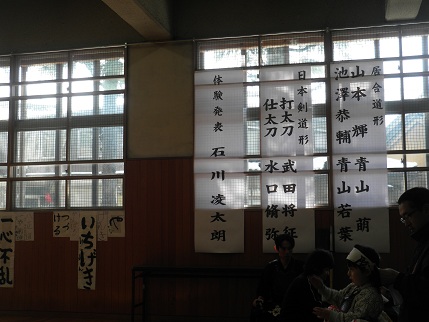 居合道形
山本輝 青山萌
池澤恭輔 青山若葉
日本剣道形
打太刀 武田将征
仕太刀 水口脩弥
体験発表 石川凌太朗
つづける
いちげき
一心不乱